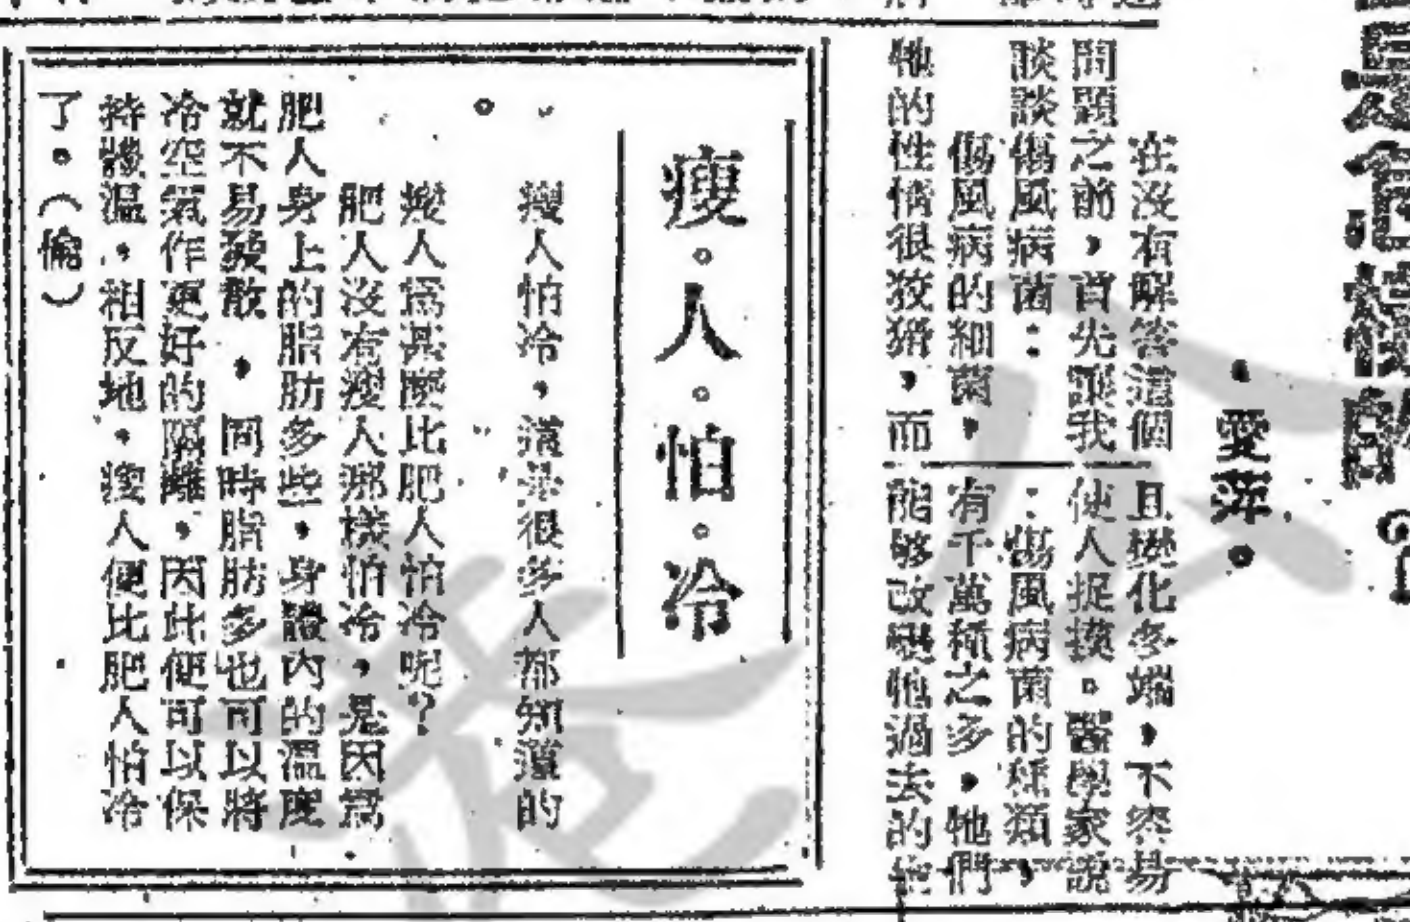 愛萍
在沒有解答這個
問題之前，首先讓我
談談傷風病菌：
傷風病的細菌，
牠的性情很狡猾，而
且變化多端，不容易
使人捉摸。醫學家說
：傷風病菌的種類，
有千萬種之多，牠們
能够改變牠過去的
瘦．人．怕．冷
瘦人怕冷，這是很多人都知道的
。
瘦人爲甚麽比肥人怕冷呢？
肥人沒有瘦人那樣怕冷，是因爲
肥人身上的脂肪多些，身體內的溫度
就不易發散，同時脂肪多也可以將
冷空氣作更好的隔離，因此便可以保
持體溫，相反地，瘦人便比肥人怕冷
了。（倫）